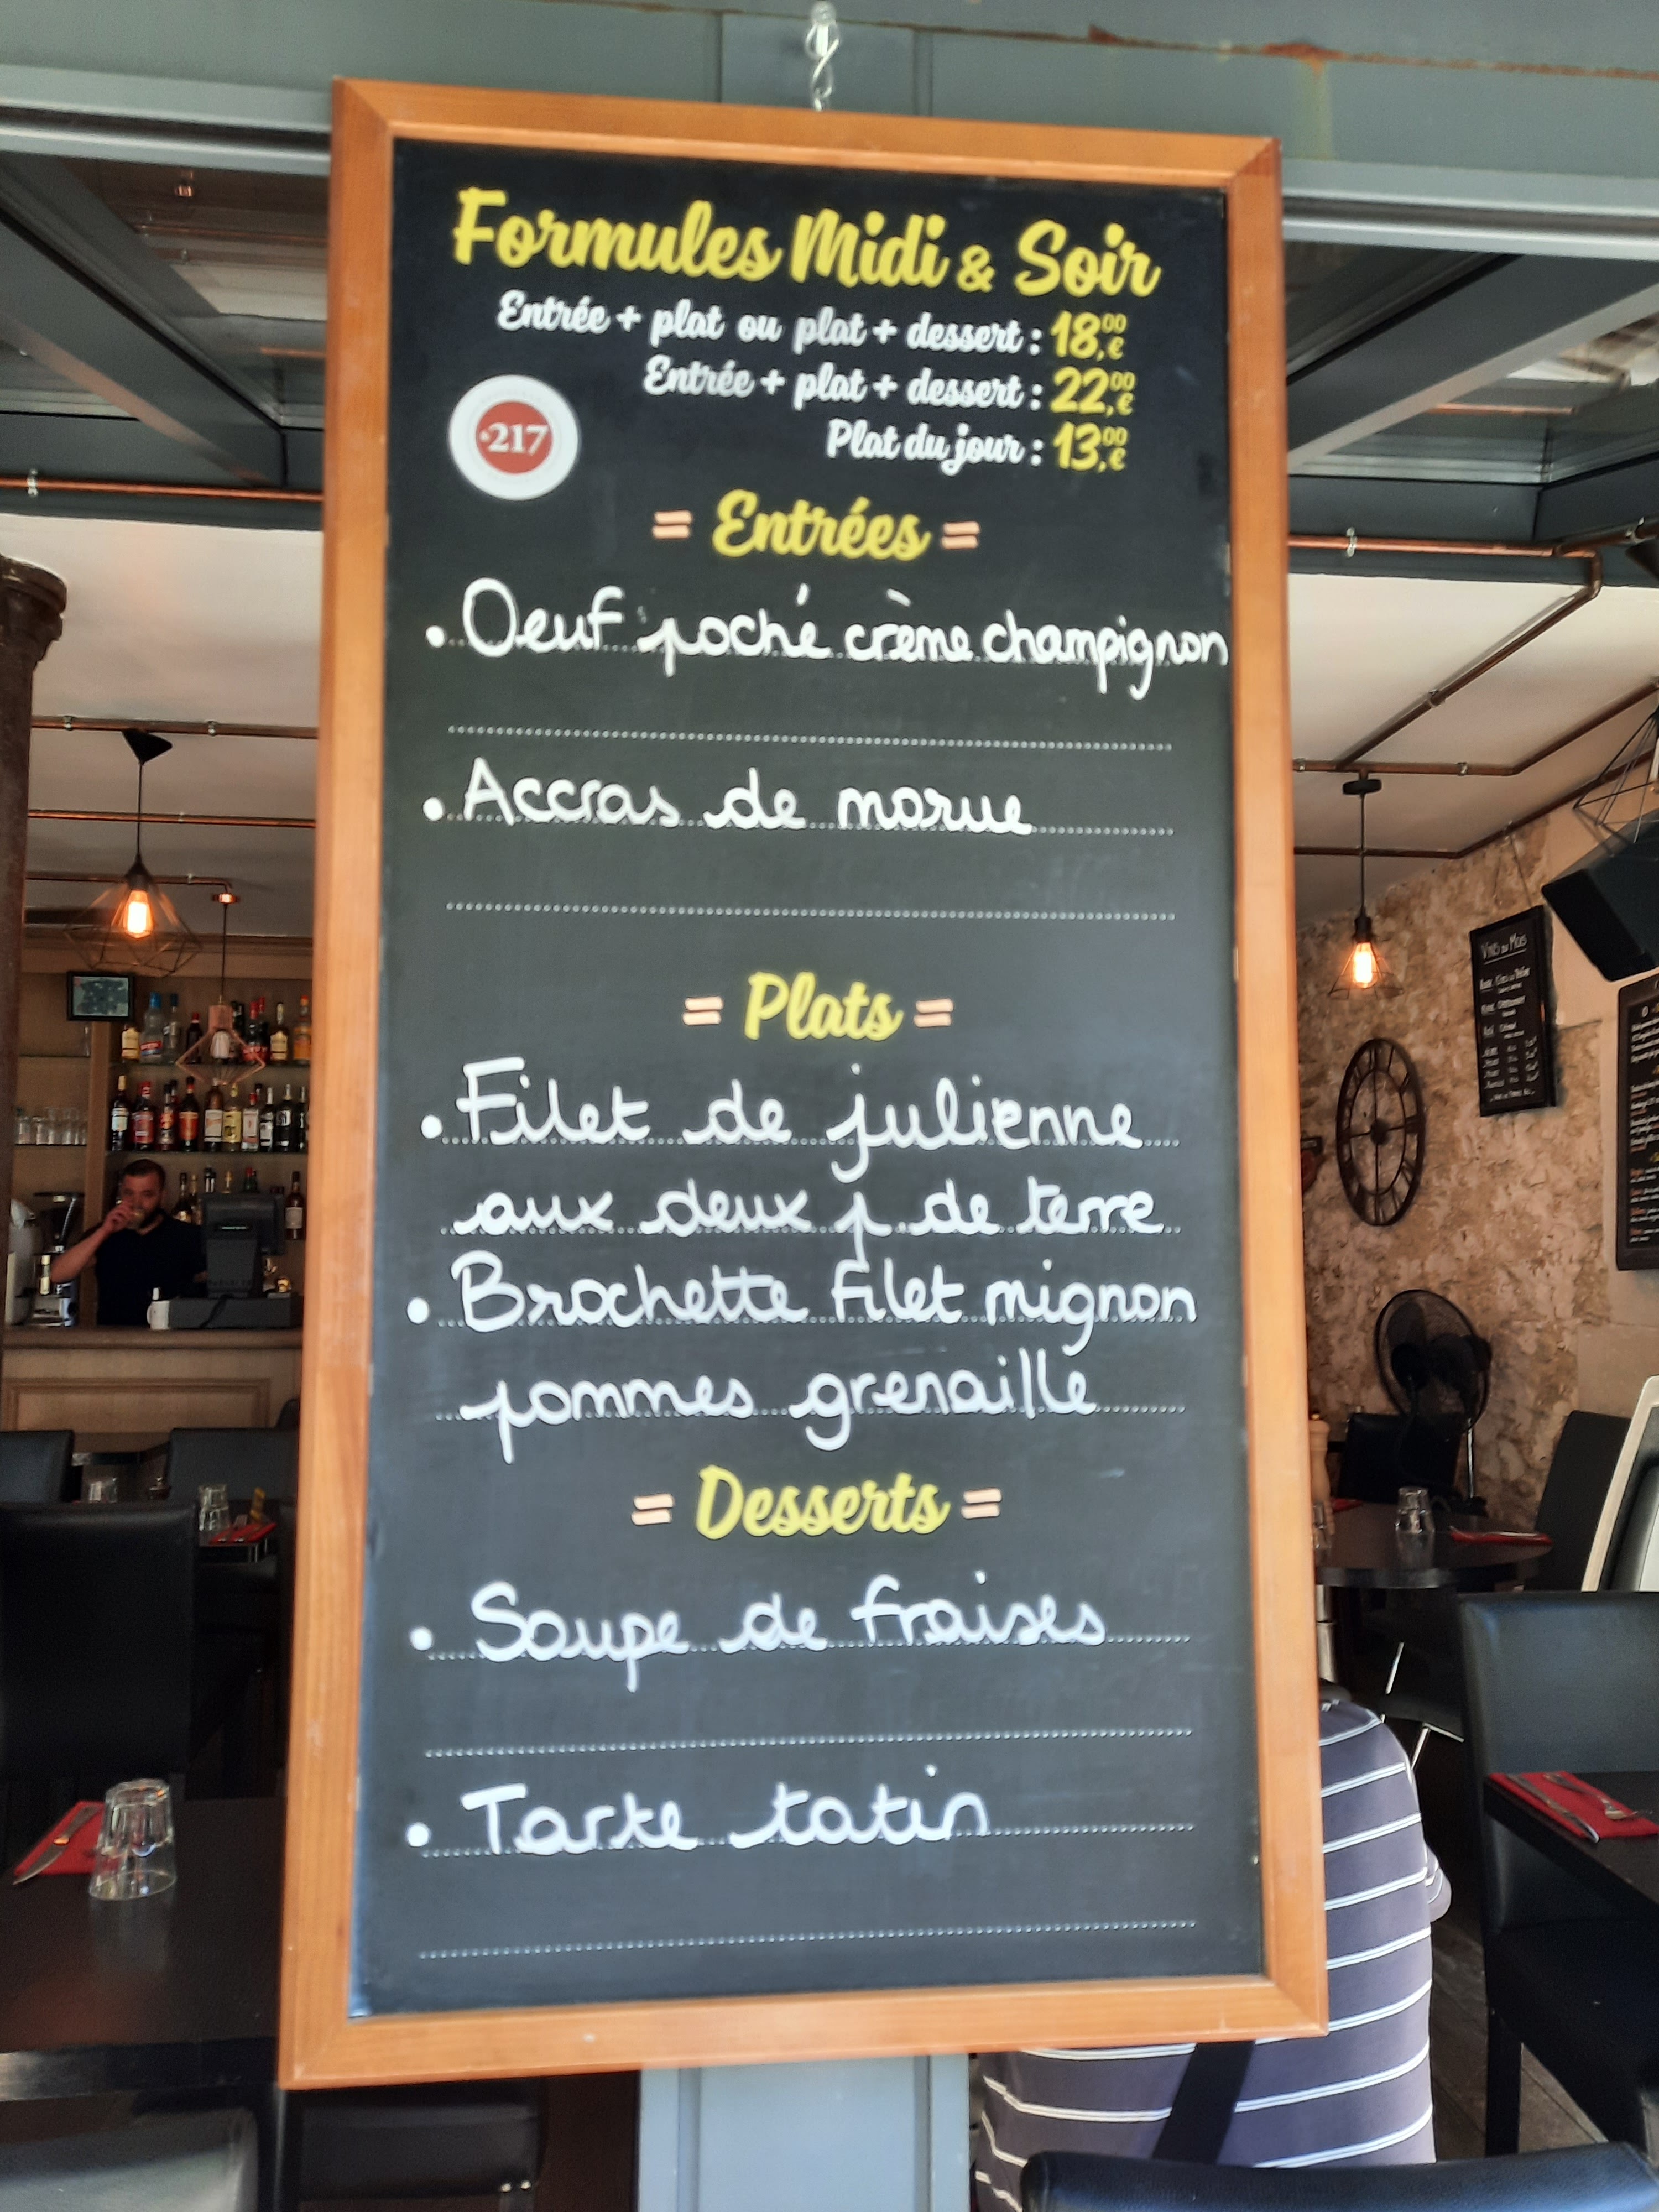 Formules Midi & Soir
Entrée + plat ou plat + dessert : 18,00€
Entrée + plat + dessert : 22,00€
Plat du jour : 13,00€
217
= Entrées =
• Oeuf poché crème champignon
• Accras de morue
= Plats =
• Filet de julienne
aux deux p. de terre
• Brochette filet mignon
pommes grenaille
= Desserts =
• Soupe de fraises
• Tarte tatin
Vins du Mois